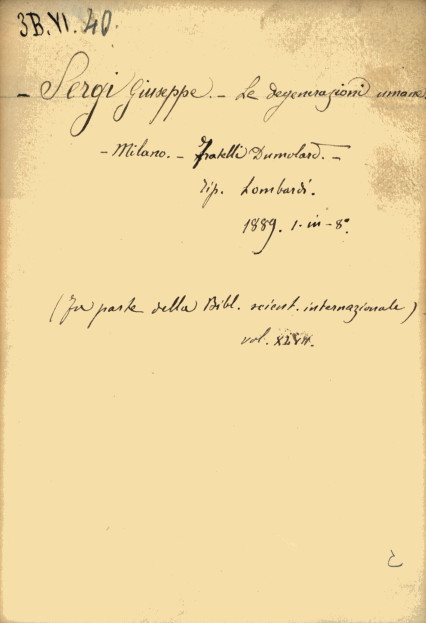 3B.VI.40.
- Sergi Giuseppe. - Le degenerazioni umane.
- Milano. - Fratelli Dumolard. -
Tip. Lombardi.
1889. 1-in-8°
(Fa parte della Bibl. scient. internazionale) -
vol.